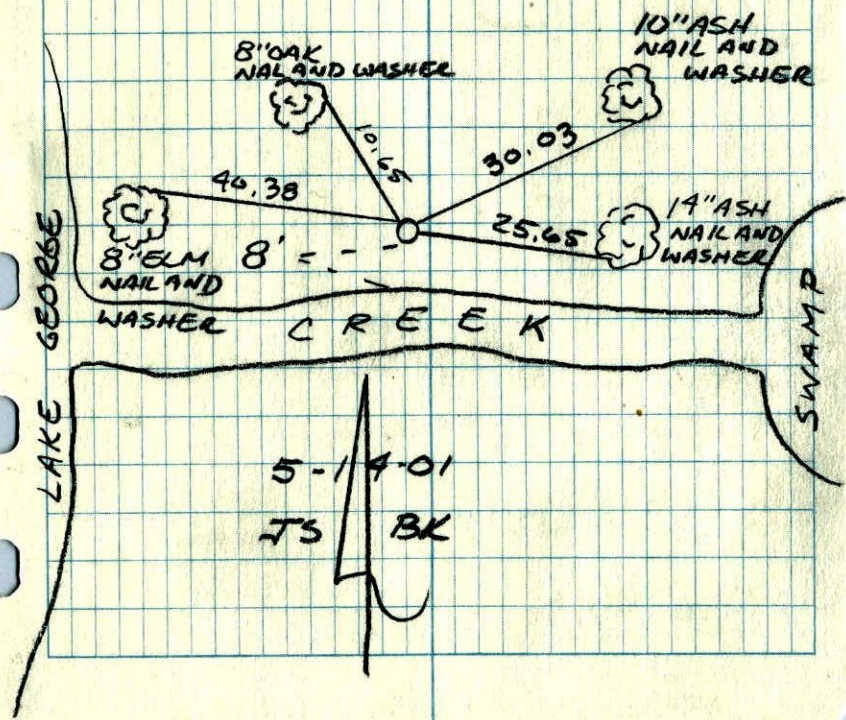 8" OAK
NAL AND WASHER
10" ASH
NAIL AND
WASHER
10.65
30.03
40.38
25.65
14" ASH
NAIL AND
WASHER
8" ELM
NAIL AND
WASHER
8'
CREEK
LAKE GEORGE
SWAMP
5-14-01
JS BK